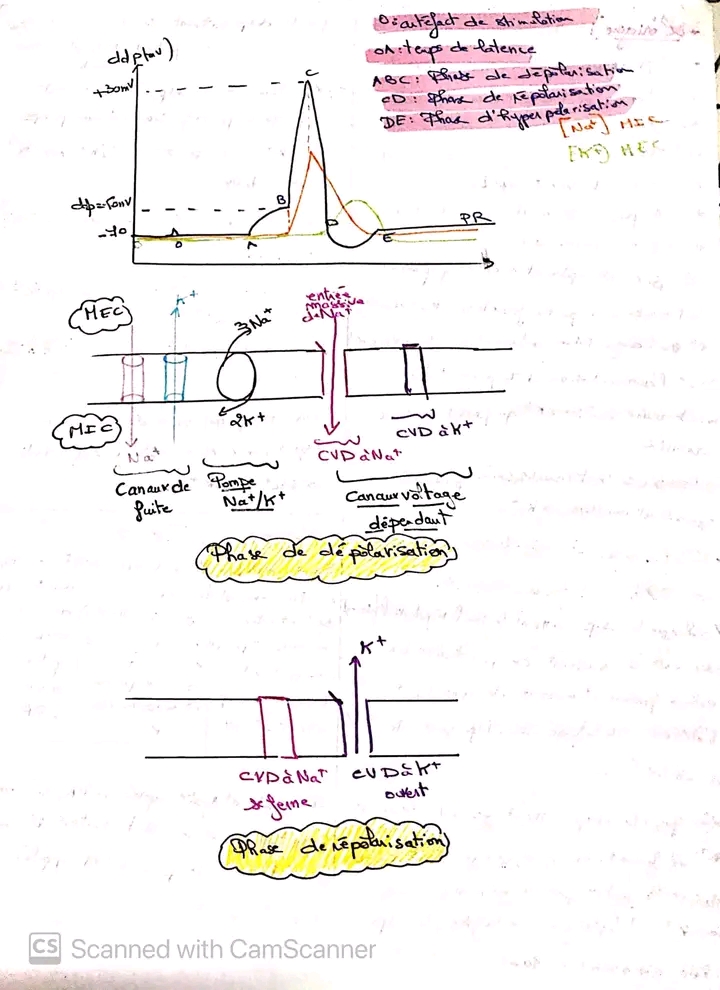 O: artéfact de stimulation
OA: temps de latence
ABC: Phase de dépolarisation
CD: Phase de répolarisation
DE: Phase d'hyperpolarisation
[Na+] MIC
[K+] MEC
ddp(mv)
+30mV
C
ddp=-50mV
B
-70
A
O
D
E
PR
MEC
K+
3Na+
entrée
massive
de Na+
MIC
Na+
2K+
CVD à Na+
CVD à K+
Canaux de
fuite
Pompe
Na+/K+
Canaux voltage
dépendant
Phase de dépolarisation
K+
CVD à Na+
se ferme
CVD à K+
ouvert
Phase de répolarisation
CS Scanned with CamScanner